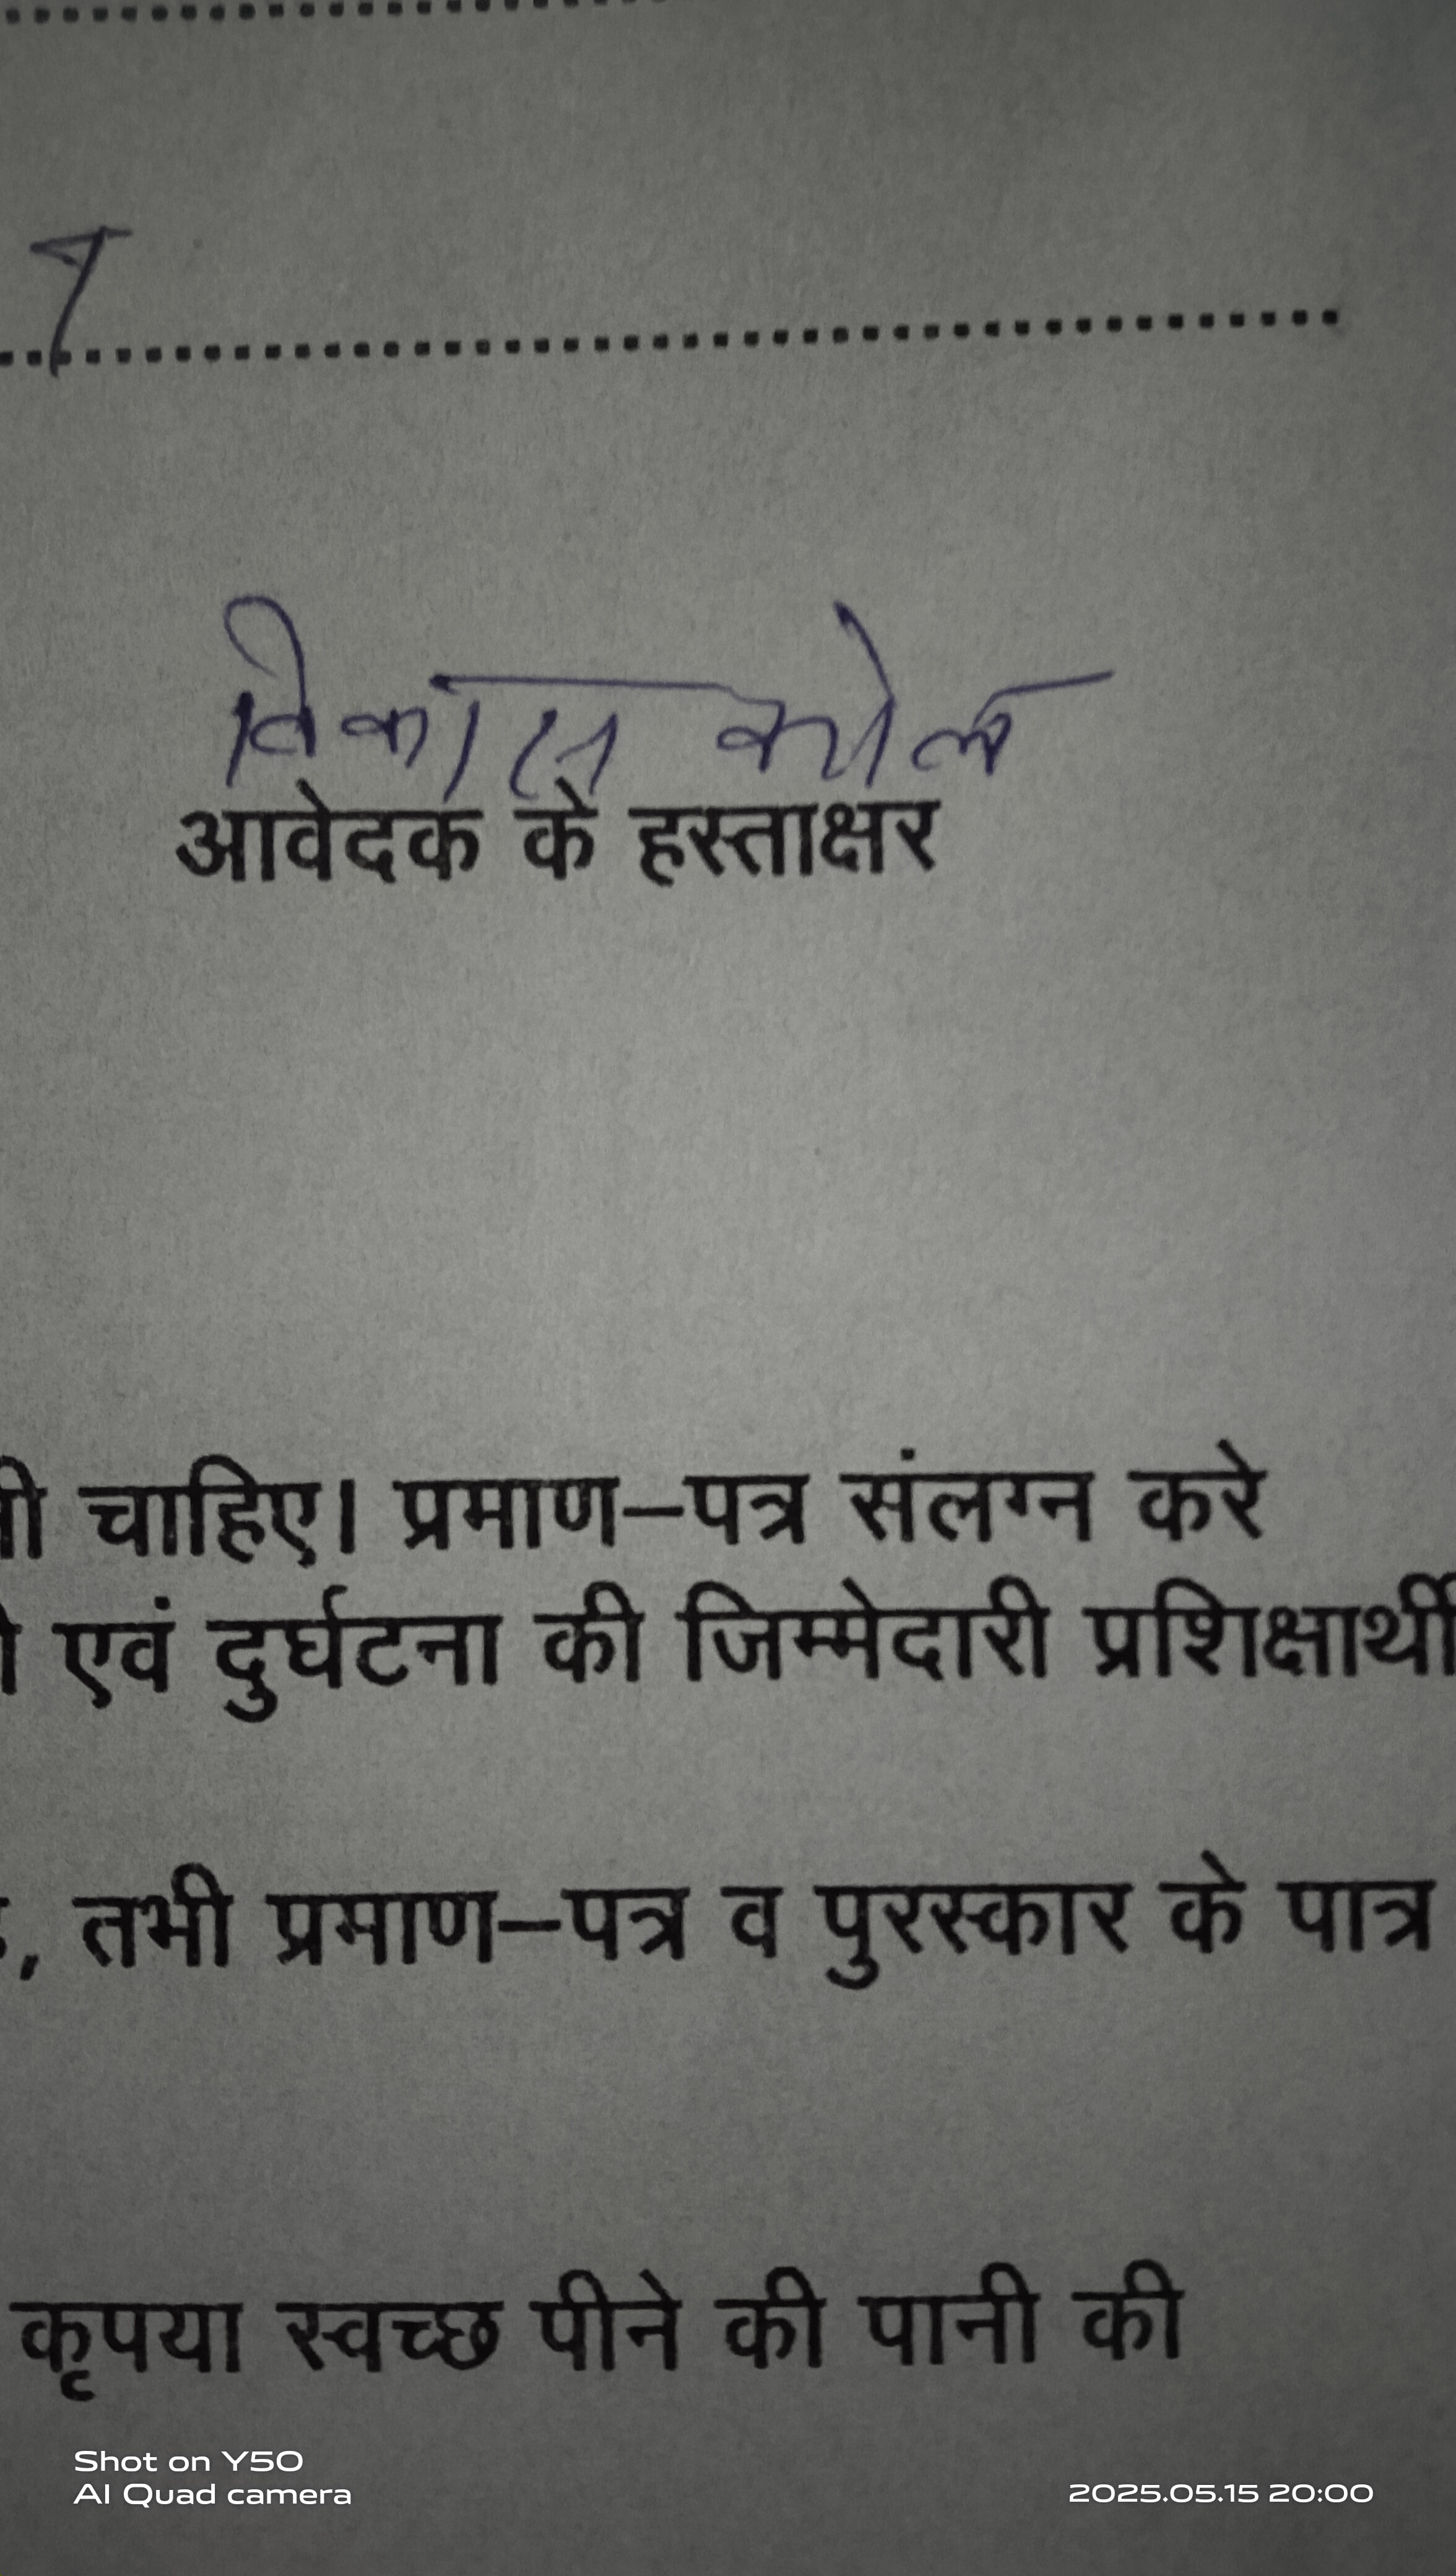 विकास कोल
आवेदक के हस्ताक्षर
चाहिए। प्रमाण–पत्र संलग्न करे
एवं दुर्घटना की जिम्मेदारी प्रशिक्षार्थी
, तभी प्रमाण–पत्र व पुरस्कार के पात्र
कृपया स्वच्छ पीने की पानी की
Shot on Y50
AI Quad camera
2025.05.15 20:00